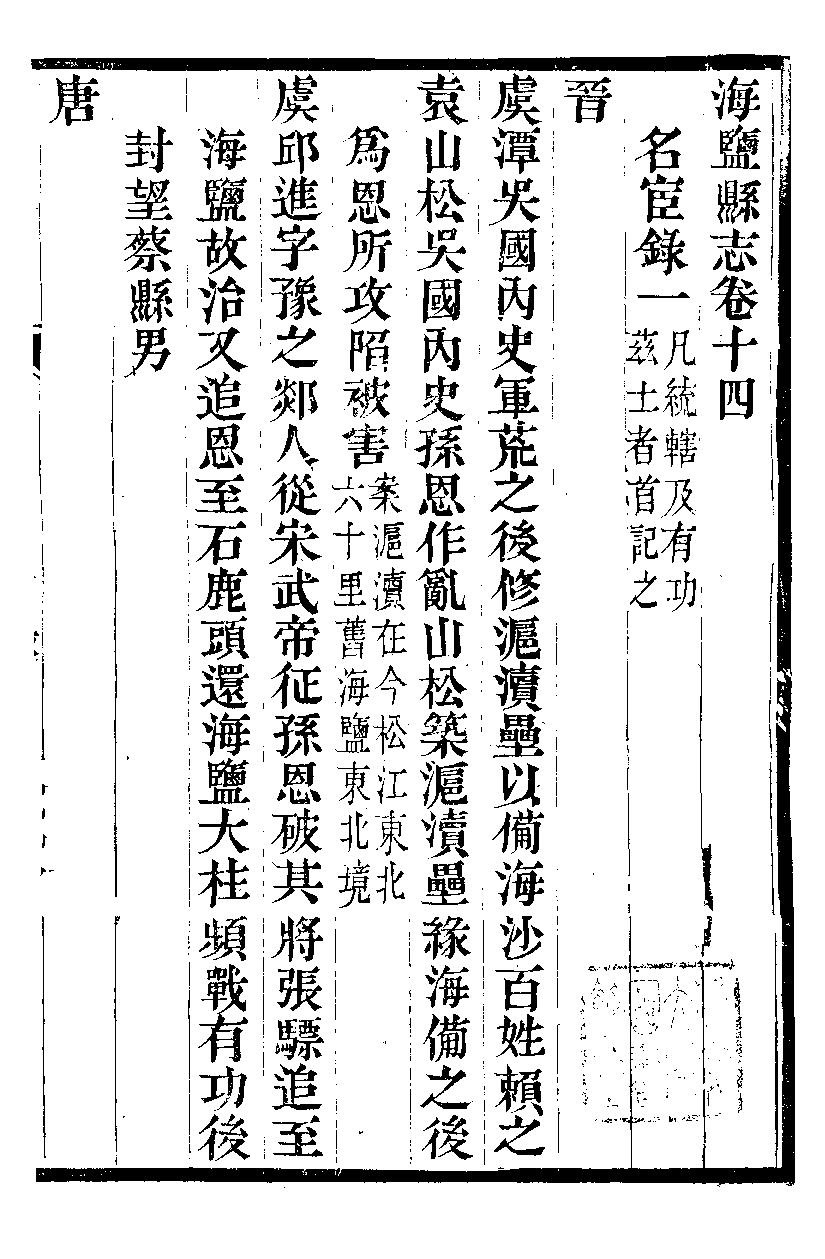 海鹽縣志卷十四
名宦錄一 凡統轄及有功
茲土者首記之
晉
虞潭吳國內史軍荒之後修滬瀆壘以備海沙百姓賴之
袁山松吳國內史孫恩作亂山松築滬瀆壘緣海備之後
爲恩所攻陷被害 案滬瀆在今松江東北
六十里舊海鹽東北境
虞邱進字豫之郯人從宋武帝征孫恩破其將張驃追至
海鹽故治又追恩至石鹿頭還海鹽大柱頻戰有功後
封望蔡縣男
唐